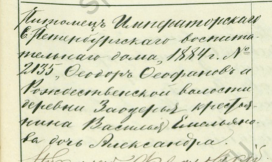 Питомецъ Императорскаго
С.Петербургскаго воспита-
тельнаго дома, 1884 г. №
2135 Ѳеодоръ Ѳеофановъ и
Рождественской волости
деревни Заозерья кресть-
янина Василья Емельяно-
ва дочь Александра.